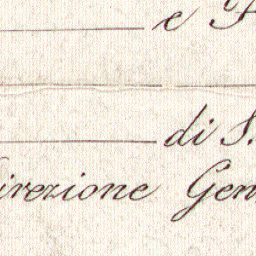 e
di S.
irezione Gen